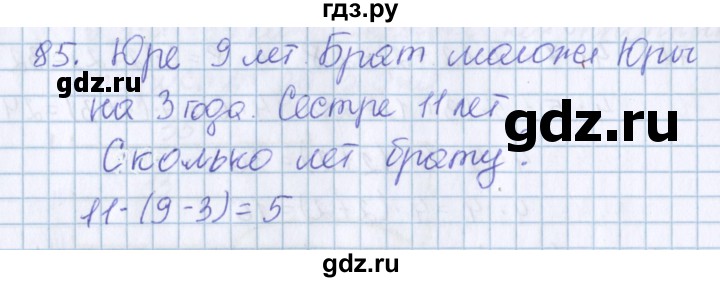 гдз.ру
85. Юре 9 лет. Брат моложе Юры
на 3 года. Сестре 11 лет
Сколько лет брату?
11-(9-3)=5
gdz.ru
gdz.ru
gdz.ru